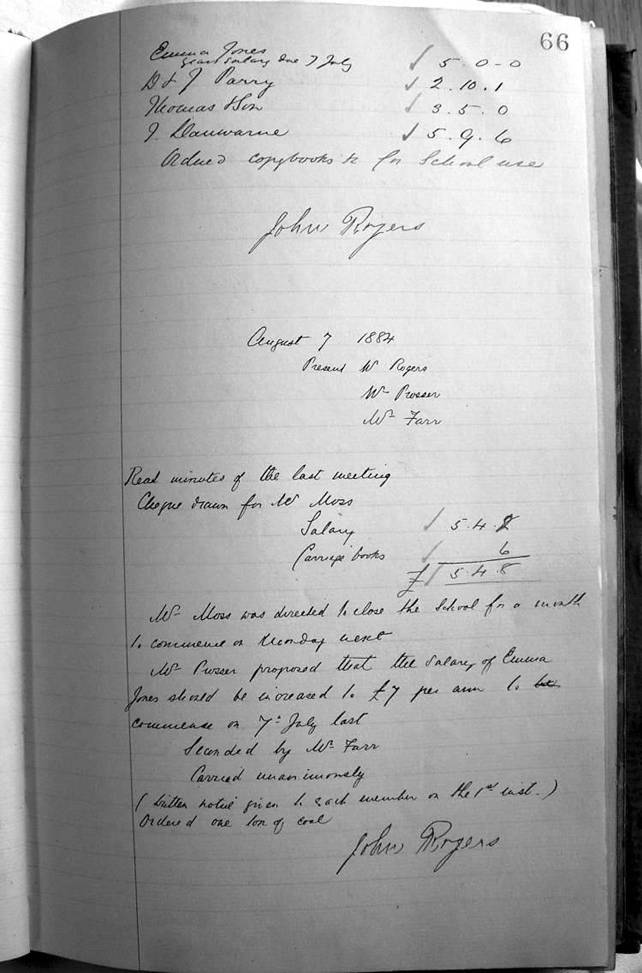 66
Emma Jones
years salary due 7 July √ 5.0-0
D & J Parry √ 2.10.1
Thomas & Son √ 3.5.0
J. √ 5.9.6
Ordered copybooks &c for School use
John Rogers
August 7 1884
Present Mr Rogers
Mr Prosser
Mr Farr
Read minutes of the last meeting
Cheque drawn for Mr Moss
Salary √ 5.4.2
Carriage books √ 6
£ √ 5.4.8
Mr Moss was directed to close the School for a month
to commence on Monday next
Mr Prosser proposed that the Salary of Emma
Jones should be increased to £7 per ann to
commence on 7th July last
Seconded by Mr Farr
Carried unanimously
(Written notice given to each member on the 1st inst.)
Ordered one ton of coal
John Rogers